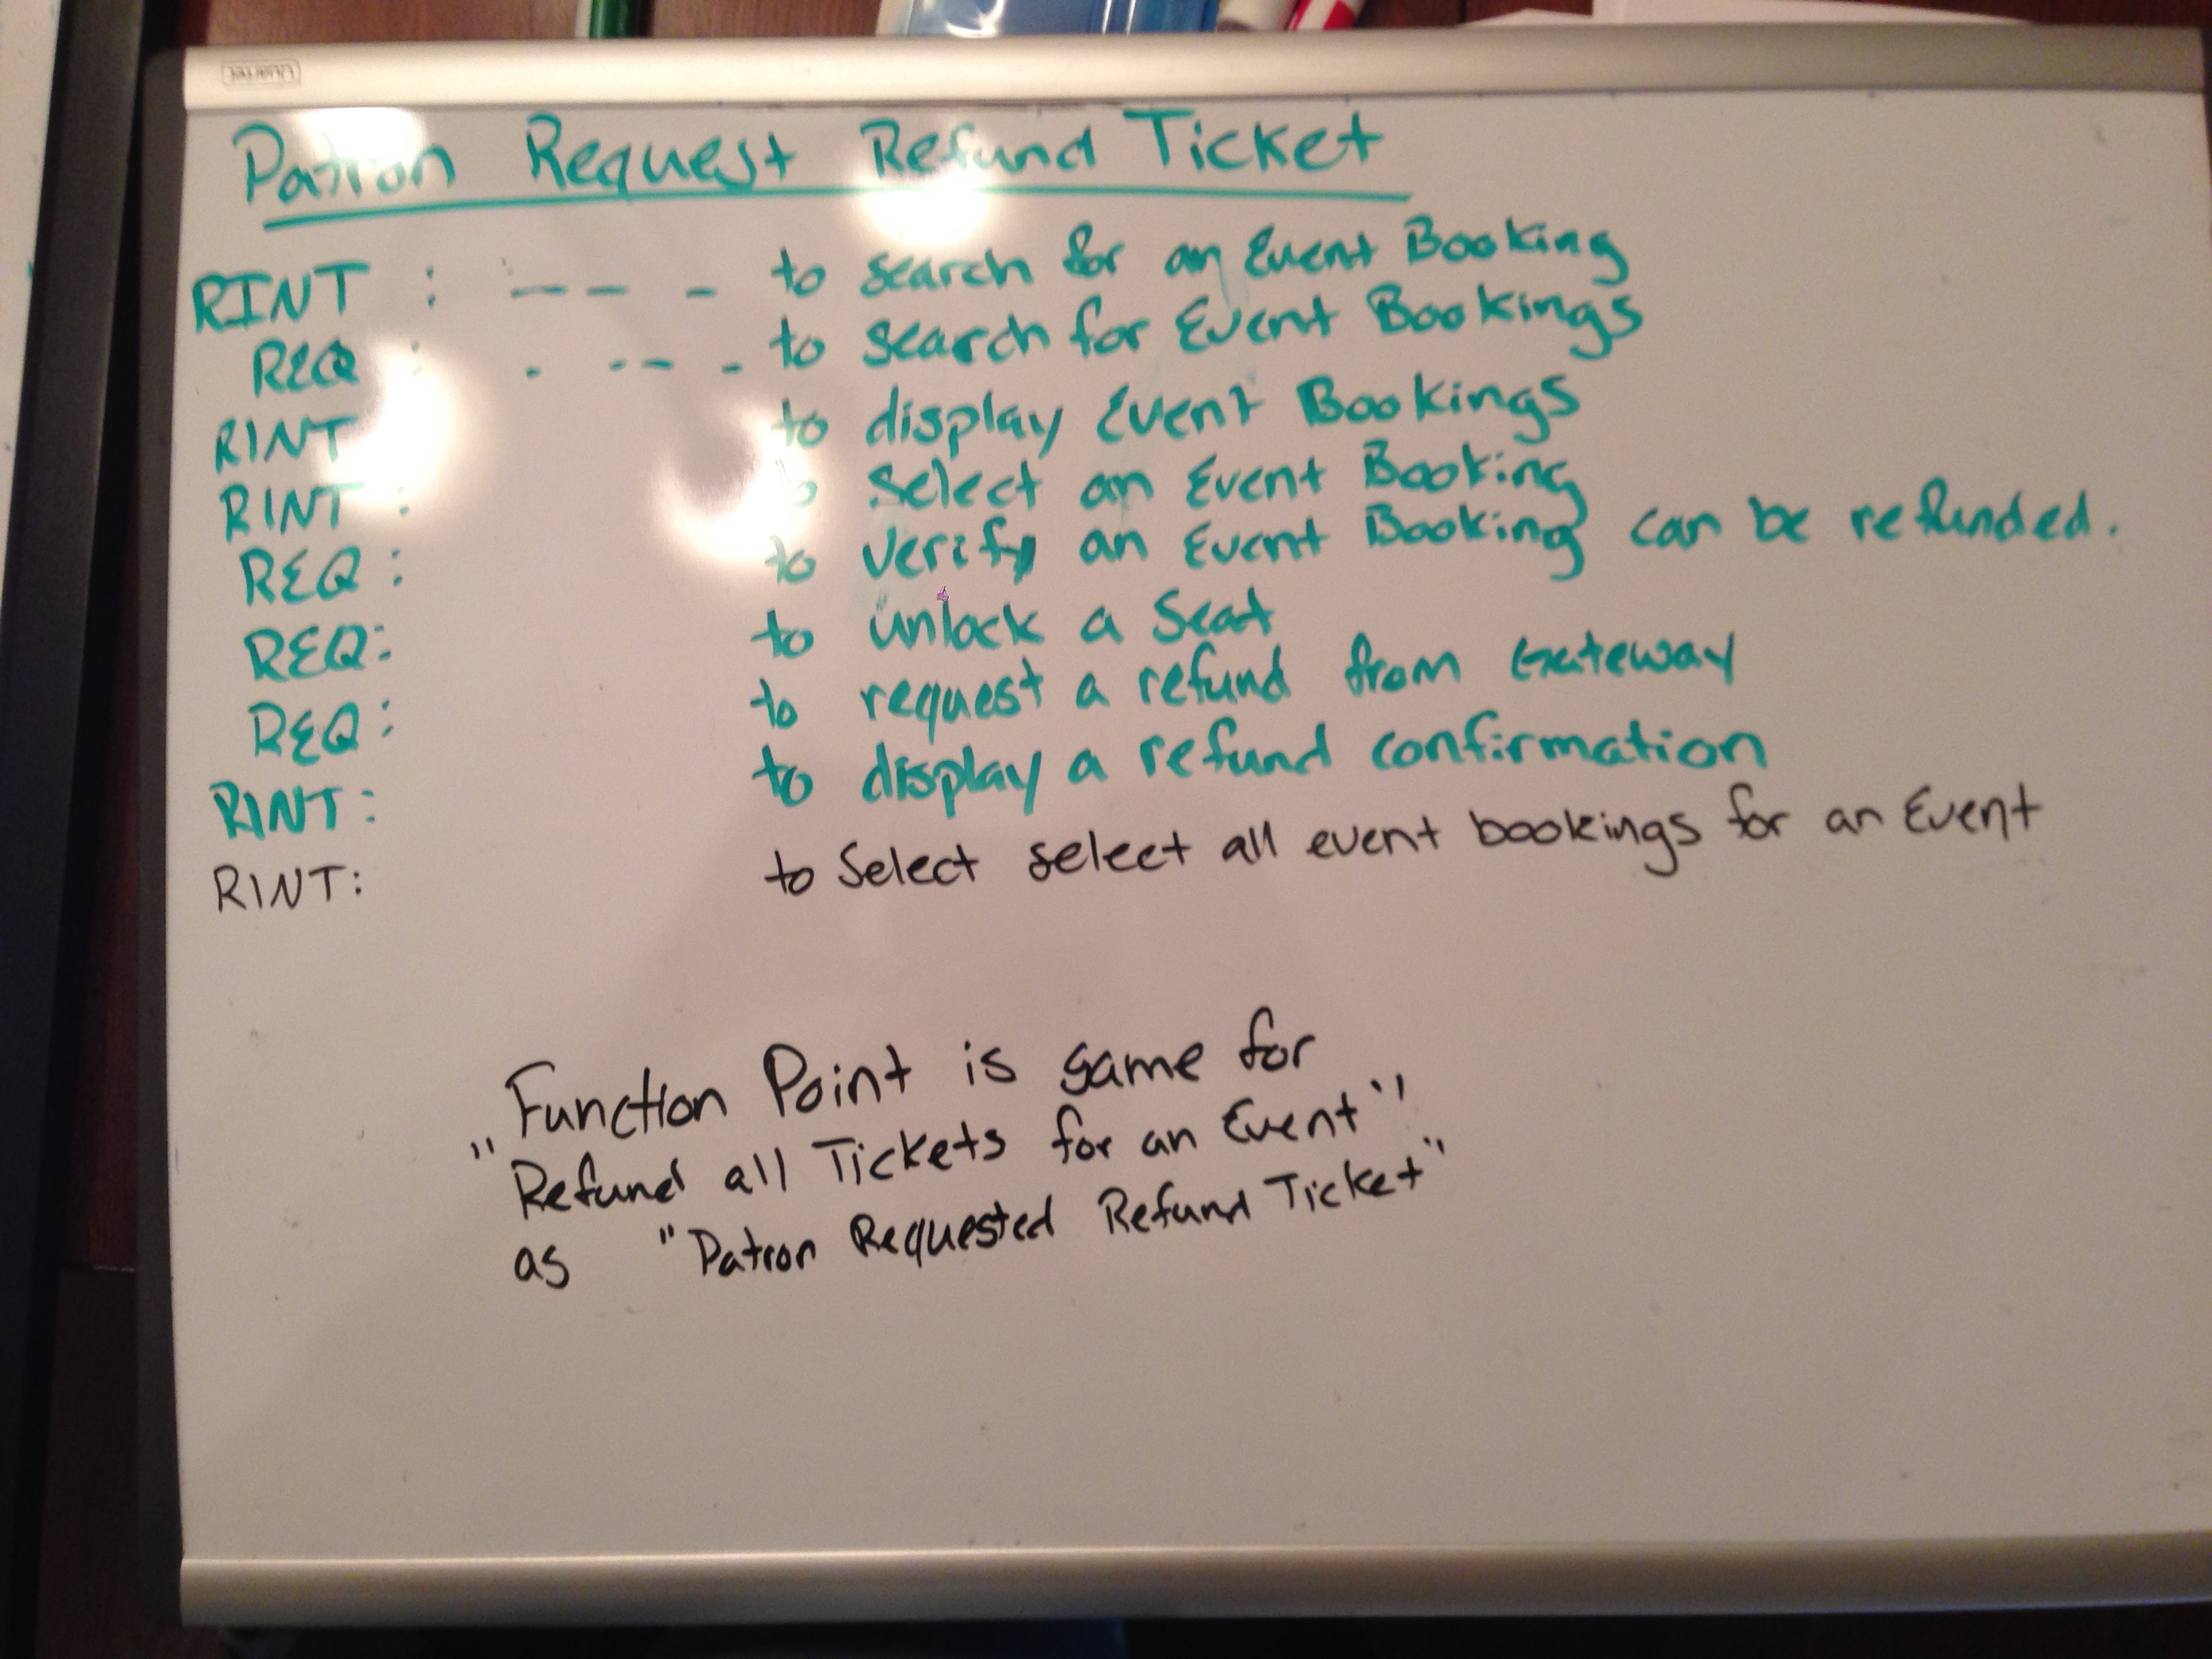 Quartet
Patron Request Refund Ticket
RINT : - - - to search for an Event Booking
REQ : - - - - to search for Event Bookings
RINT to display Event Bookings
RINT : to select an Event Booking
REQ : to verify an Event Booking can be refunded.
REQ: to unlock a Seat
REQ: to request a refund from Gateway
RINT: to display a refund confirmation
RINT: to Select select all event bookings for an Event
Function Point is same for
"Refund all Tickets for an Event"
as "Patron Requested Refund Ticket"